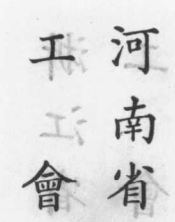 河南省
工會